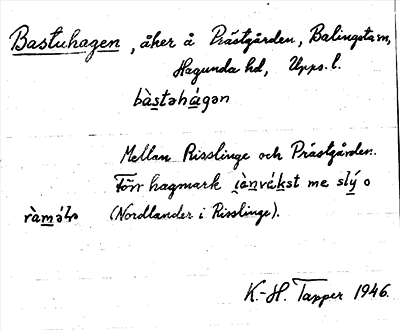 Bastuhagen, åker å Prästgården, Balingsta sn,
Hagunda hd, Upps. l.
bàstəhágən
Mellan Risslinge och Prästgården.
Förr hagmark ìənväkst me slý o
ràməlr (Nordlander i Risslinge).
K.-H. Tapper 1946.